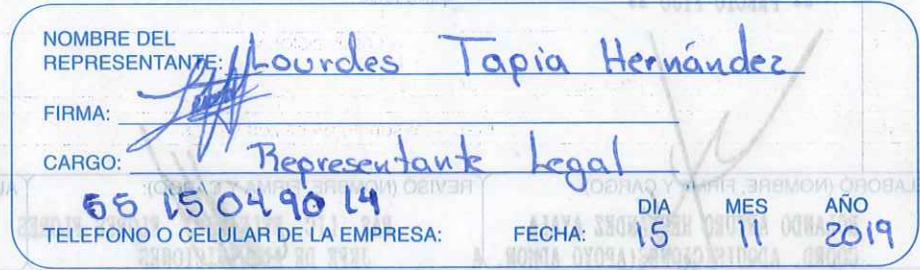 NOMBRE DEL
REPRESENTANTE: Lourdes Tapia Hernández
FIRMA:
CARGO: Representante Legal
55 15 04 90 14
TELEFONO O CELULAR DE LA EMPRESA:
FECHA: DIA 15 MES 11 AÑO 2019